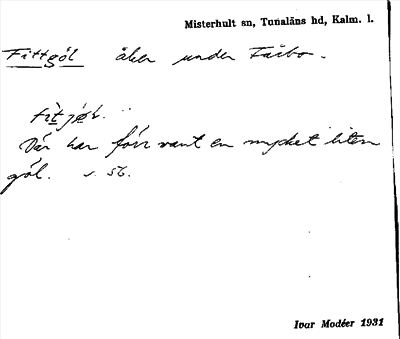 Misterhult sn, Tunaläns hd, Kalm. l.
Fittgöl åker under Fårbo.
fìtjø̀l.
Där har förr varit en mycket liten
göl. s. 56.
Ivar Modéer 1931